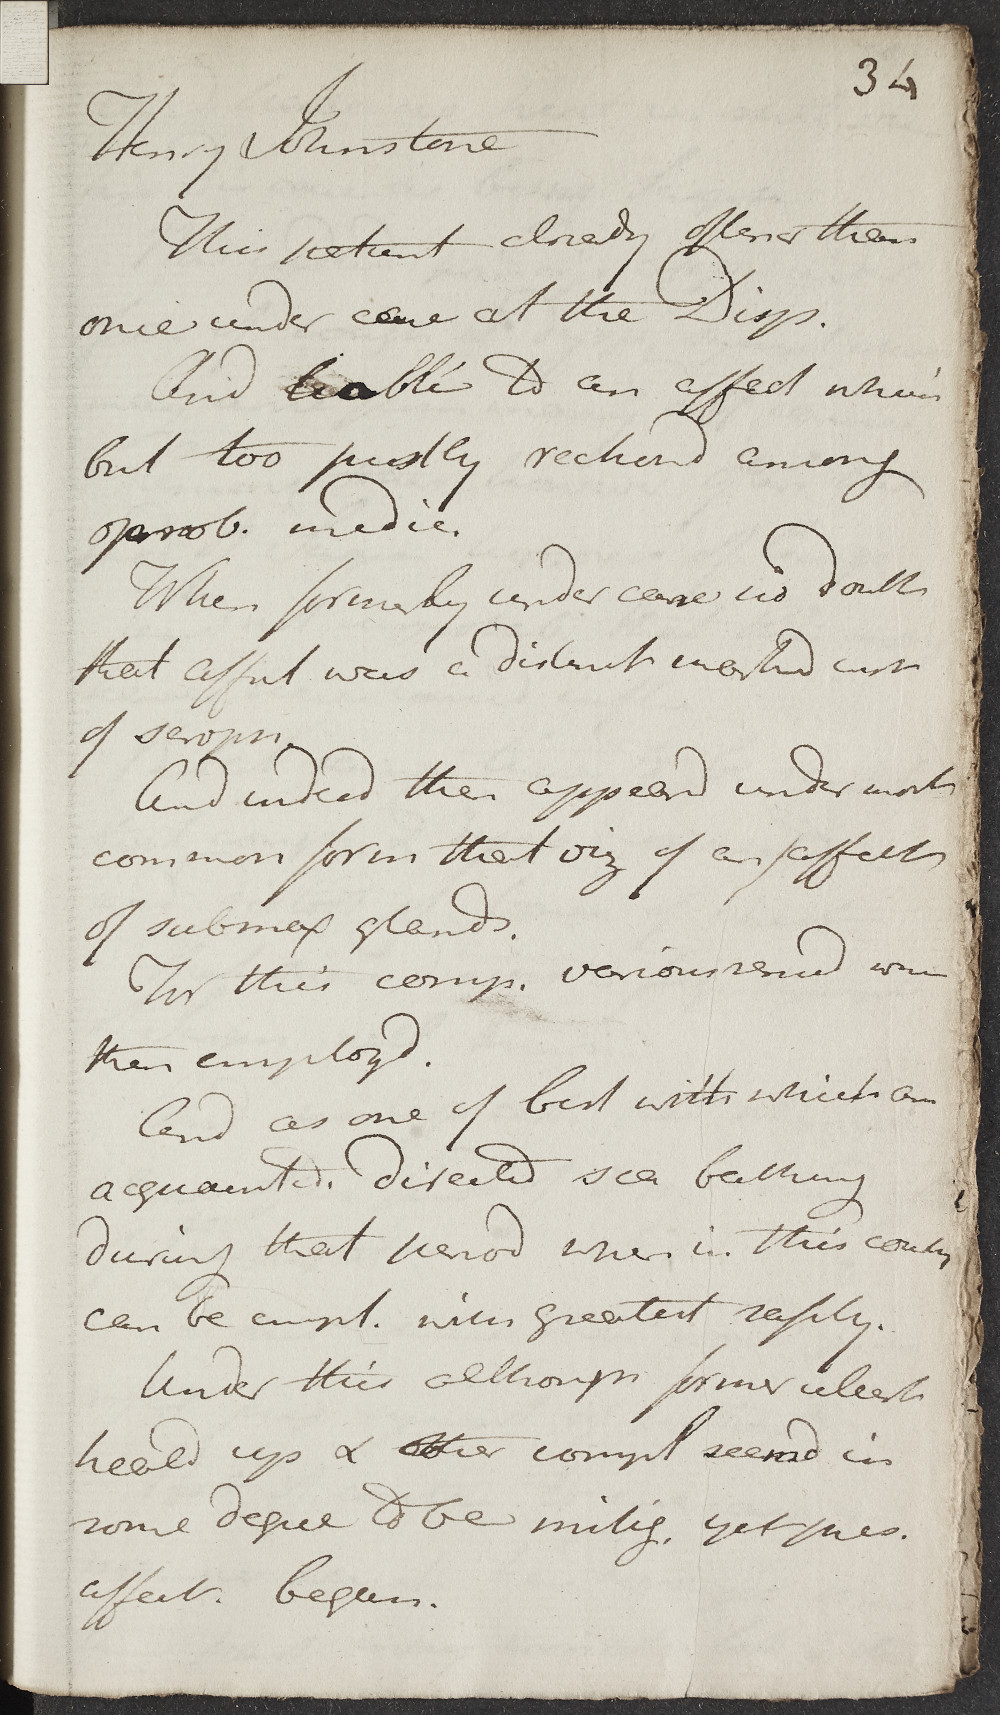 34
Henry Johnstone
This patient already oftener then
once under care at the Disp.
And liable to an affect which
but too justly reckond among
opprob. medic.
When formerly under care no doubt
that affect was a distinct marked inst
of scroph.
And indeed then appeard under most
common form that viz of an affect
of submax glands.
For this comp. various remed were
then employd.
And as one of best with which am
acquainted. directed sea bathing
during that period when in this country
can be empl. with greatest safety.
Under this although former ulcers
heald up & other compl seemd in
some degree to be mitig. yet pres.
affect. began.